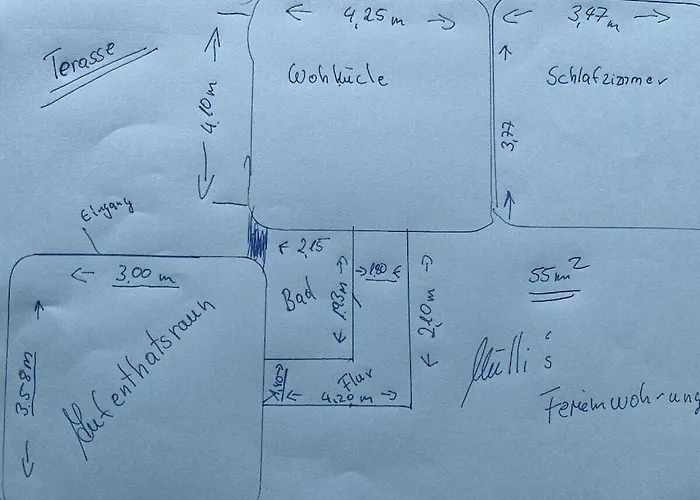 Terasse
4,25 m
3,47 m
Wohküche
Schlafzimmer
4,10 m
3,77
Eingang
3,00 m
2,15
Bad
1,93 m
2,10 m
55 m²
3,58 m
Aufenthatsrauh
Flur
4,20 m
Mülli's
Ferienwohnung